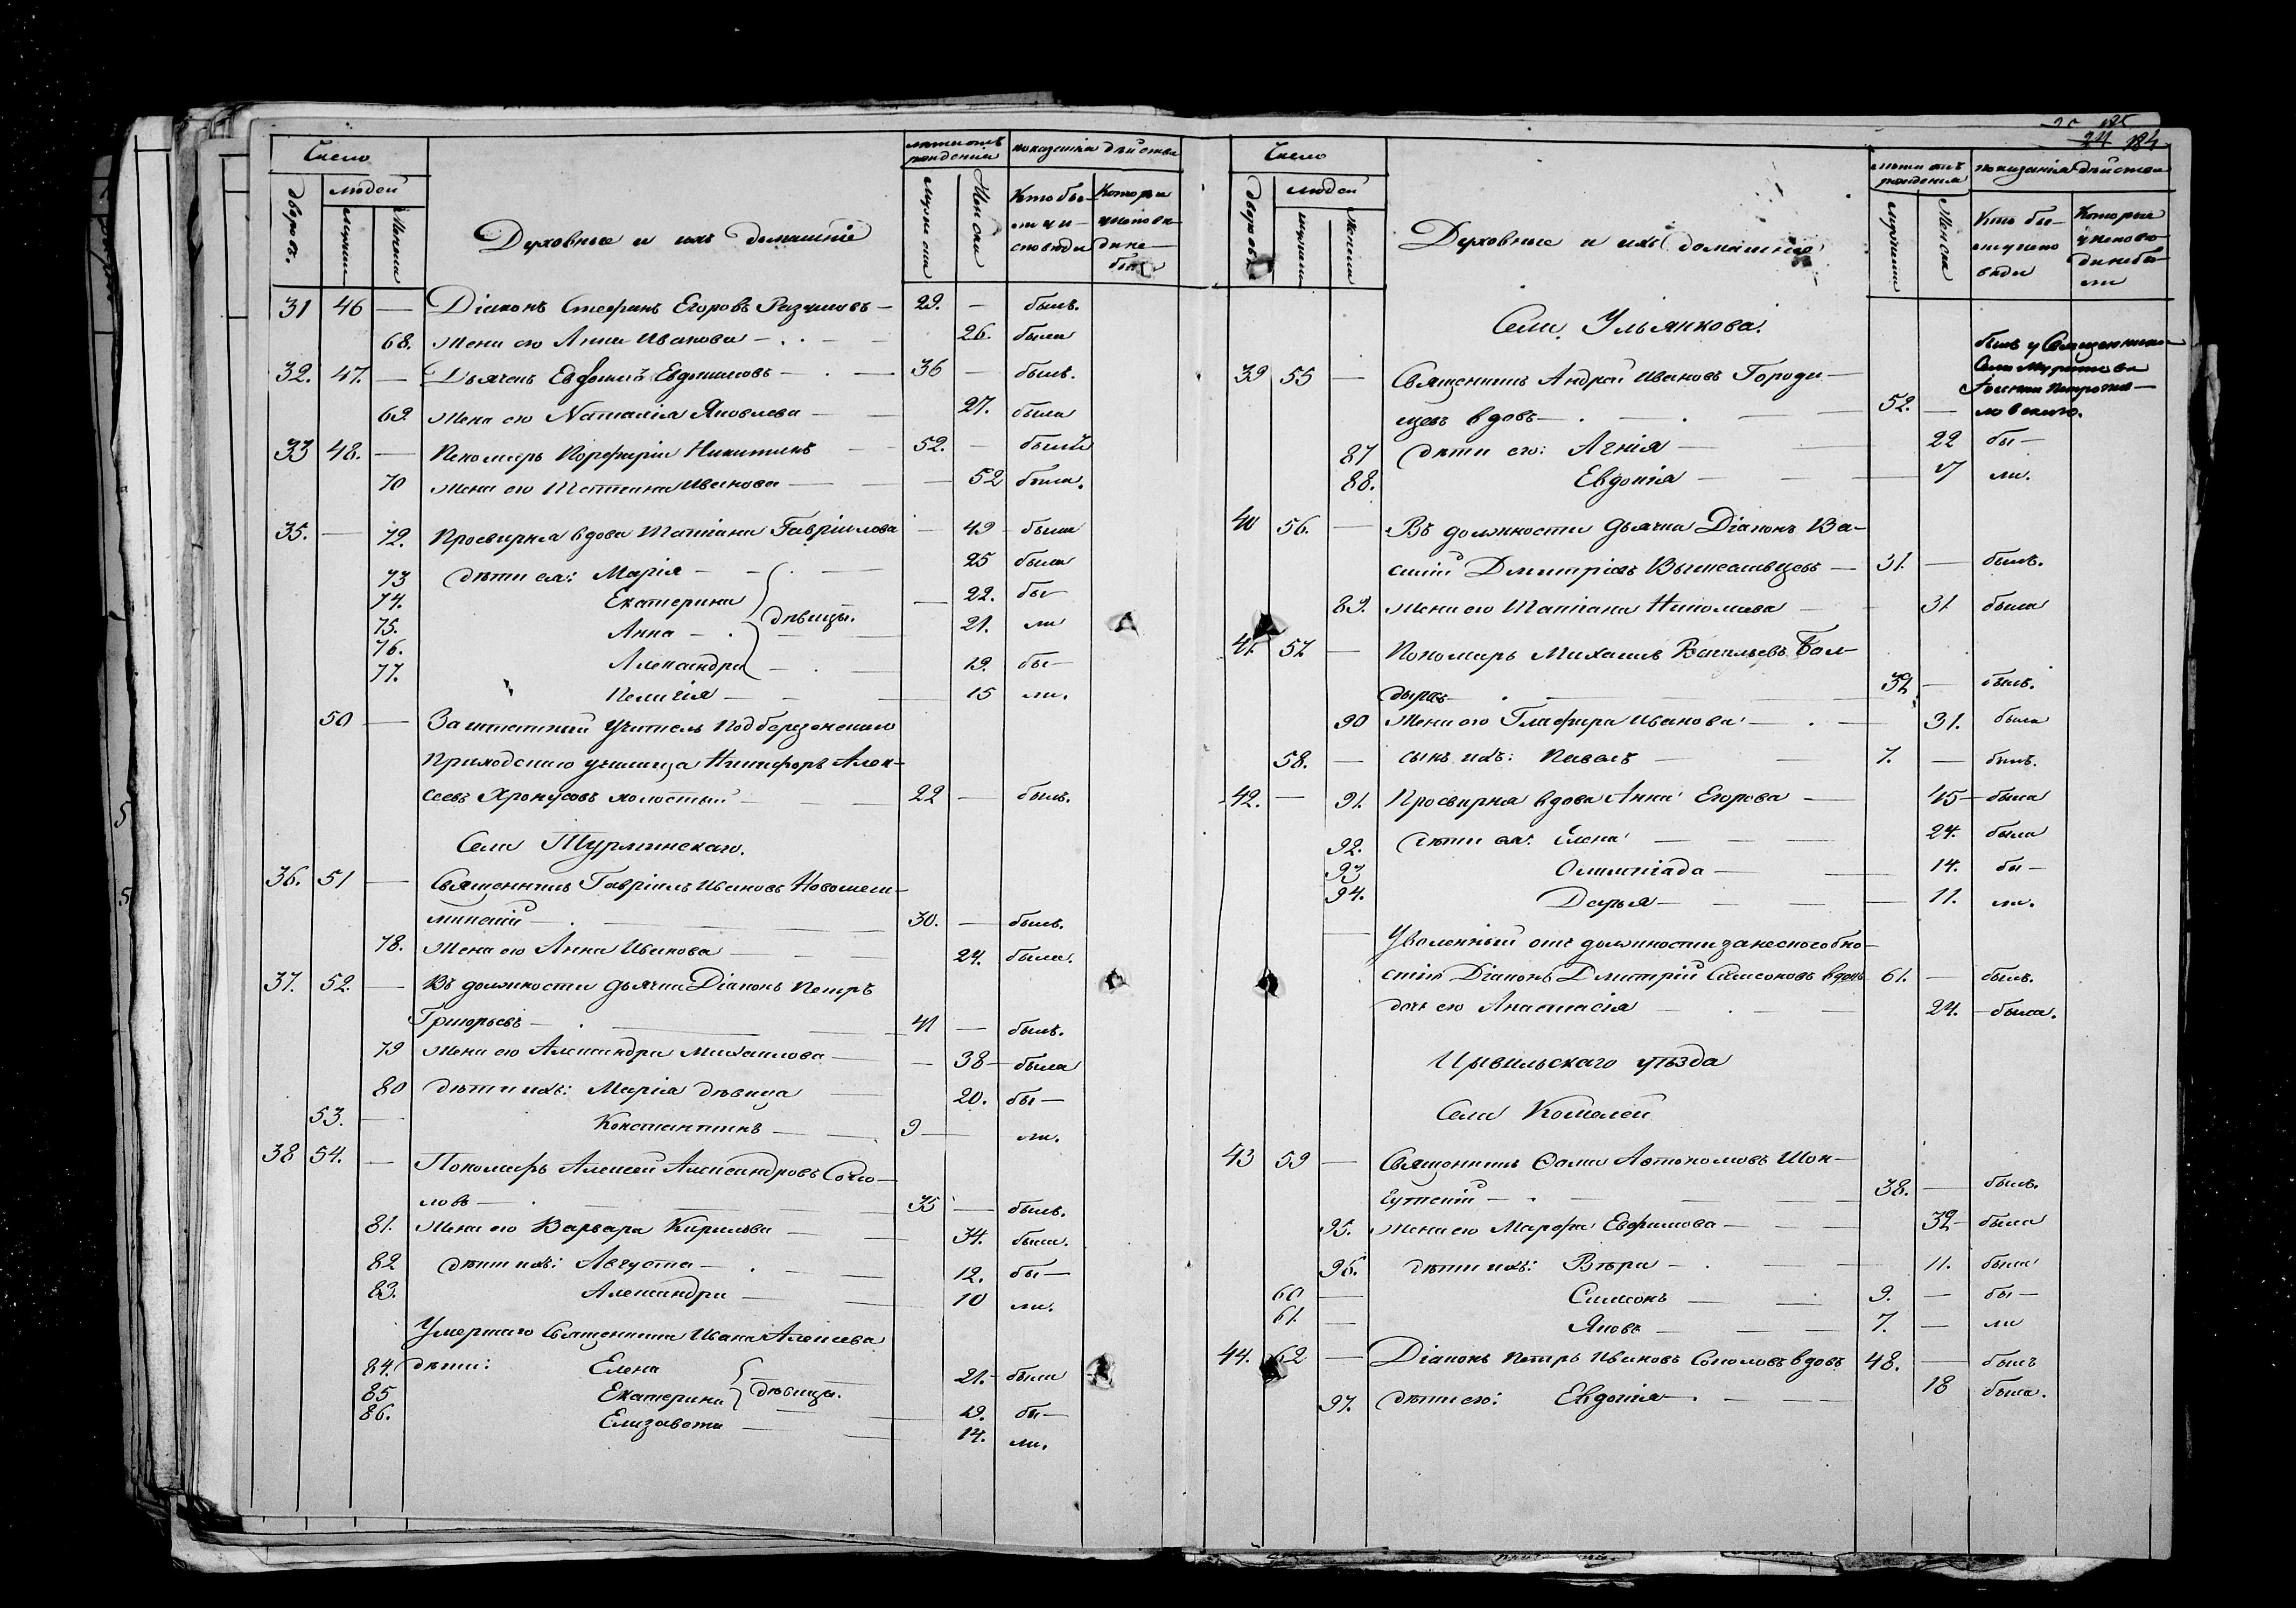 Число
лѣта отъ рожденія
показанія дѣйства
дворовъ.
людей
мужеска
женска
Духовные и ихъ домашніе
мужеска
женска
Кто былъ у исповѣди
Которые у исповѣди не были
31 46 — Діаконъ Стефанъ Егоровъ Разумовъ — 29. — былъ.
68. жена его Анна Иванова — 26. была
32. 47. — Дьячекъ Евфимій Евдокимовъ — 36 — былъ.
69 жена его Наталія Яковлева — 27. была
33 48. — Пономарь Порфирій Никитинъ — 52. — былъ
70 жена его Татіана Иванова — 52 была.
35. — 72. Просвирня вдова Татіана Гавріилова — 49 — была
73 дѣти ея: Марія — 25 была
74. Екатерина 22. бы—
75. Анна — дѣвицы. 21. ли
76. Александра — 19. бы—
77. Пелагія — 15 ли.
50 — Заштатный Учитель Подберезенскаго
Приходскаго училища Никифоръ Алек-
сеевъ Хрокусовъ холостый — 22 — былъ.
Села Турминскаго.
36. 51 — Священникъ Гавріилъ Ивановъ Новошеш-
минскій — 30. — былъ.
78. Жена его Анна Иванова — 24. была.
37. 52. — Въ должности дьячка Діаконъ Петръ
Григорьевъ — 41 — былъ.
79 Жена его Александра Михаилова — 38 — была
80 дѣти ихъ: Марія дѣвица — 20. бы—
53. — Константинъ — 9 — ли.
38 54. — Пономарь Алексей Александровъ Соко-
ловъ — 35 — былъ.
81. Жена его Варвара Кирилова — 34. была.
82 дѣти ихъ: Августа — 12. бы—
83. Александра — 10 ли.
Умершаго Священника Ивана Алексеева
84. дѣти: Елена 21. — была
85 Екатерина дѣвицы. 19. бы—
86. Елизавета — 14. ли.
24 184
Число
лѣта отъ рожденія
показанія дѣйства
дворовъ
людей
мужеска
женска
Духовные и ихъ домашніе
мужеска
женска
Кто былъ у исповѣди
Которые у исповѣди не были
Села Ульянкова.
былъ у Священника
Села Муратова
39 55 — Священникъ Андрей Ивановъ Городи-
щевъ вдовъ — 52. — Іоанна Петропав-
ловскаго.
87 дѣти его: Агнія — 22 бы—
88. Евдокія — 17 ли.
40 56. — Въ должности дьячка Діаконъ Ва-
силій Дмитріевъ Вышеславцевъ — 31. — былъ.
89. Жена его Татіана Николаева — 31 была
41. 57. — Пономарь Михаилъ Васильевъ Бол-
дыревъ — 32 — былъ.
90 Жена его Глафира Иванова — 31. была
58. — сынъ ихъ: Павелъ — 7. — былъ.
42. — 91. Просвирня вдова Анна Егорова — 45 — была
92. дѣти ея: Елена — 24. была
93 Олимпіада — 14. бы—
94. Дарья — 11. ли.
— Уволенный отъ должности за неспособно-
стію Діаконъ Дмитрій Самсоновъ вдовъ 61. — былъ.
дочь его Анастасія — 24. — была.
Цывильскаго уѣзда
Села Кошелей
43 59 — Священникъ Ѳома Автономовъ Шок-
— 38. — былъ.
95. Жена его Марфа Ефимова — 32 — была
96. дѣти ихъ: Вѣра — 11. была
60 — Симеонъ — 9. — бы—
61. — Яковъ — 7. — ли
44. 62 — Діаконъ Петръ Ивановъ Соколовъ вдовъ 48. — былъ
97. дѣти его: Евдокія — 18 была.